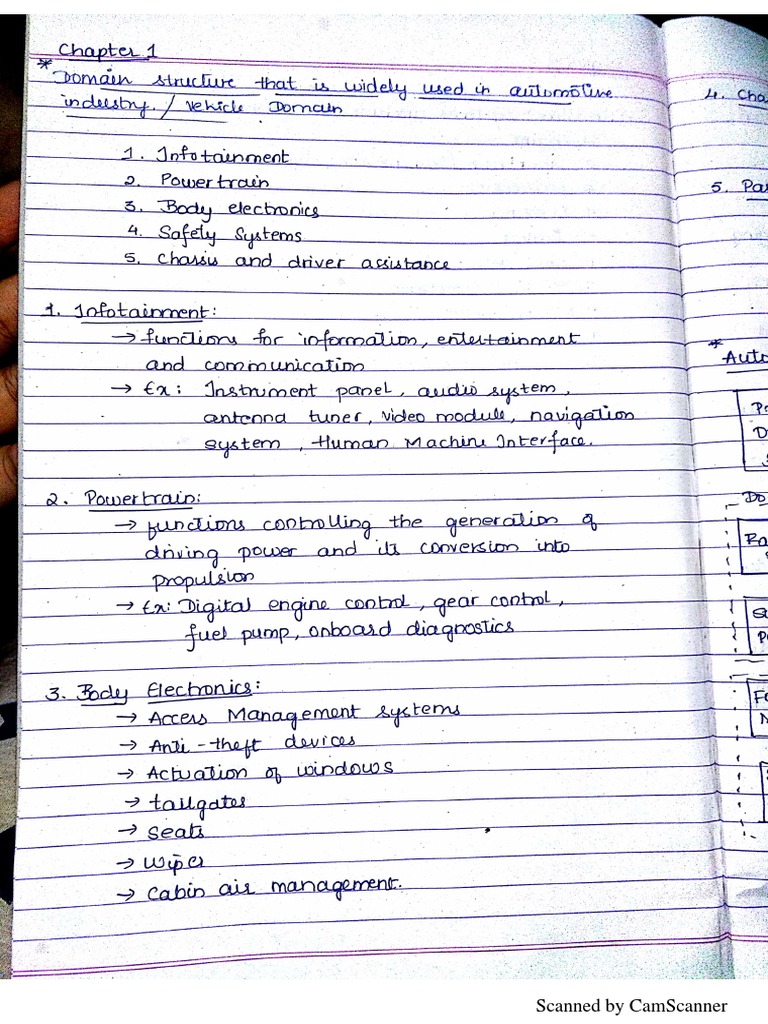 Chapter 1
* Domain structure that is widely used in automotive
industry. / Vehicle Domain
1. Infotainment
2. Powertrain
3. Body electronics
4. Safety Systems
5. Chassis and driver assistance
1. Infotainment:
→ functions for information, entertainment
and communication
→ Ex: Instrument panel, audio system,
antenna tuner, video module, navigation
system, Human Machine Interface.
2. Powertrain:
→ functions controlling the generation of
driving power and its conversion into
propulsion
→ Ex: Digital engine control, gear control,
fuel pump, onboard diagnostics
3. Body Electronics:
→ Access Management systems
→ Anti-theft devices
→ Actuation of windows
→ tailgates
→ seats
→ wiper
→ cabin air management.
4. Cha
5. Pas
* Auto
Do
Scanned by CamScanner